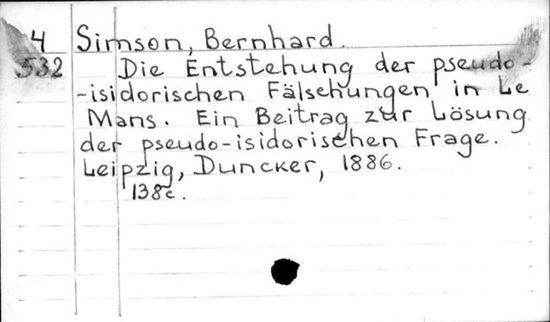 4 Simson, Bernhard.
532 Die Entstehung der pseudo-
-isidorischen Fälschungen in Le
Mans. Ein Beitrag zur Lösung
der pseudo-isidorischen Frage.
Leipzig, Duncker, 1886.
138c.